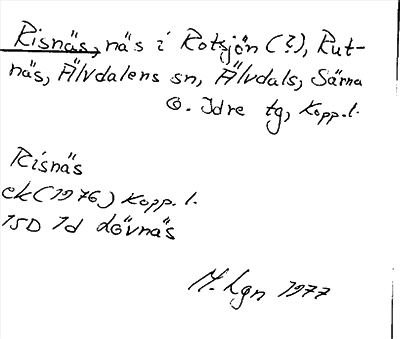 Risnäs, näs i Rotsjön (?), Rut-
näs, Älvdalens sn, Älvdals, Särna
o. Idre tg, Kopp.l.
Risnäs
ek (1976) Kopp.l.
15D 1d Lövnäs
M. Lgn 1977